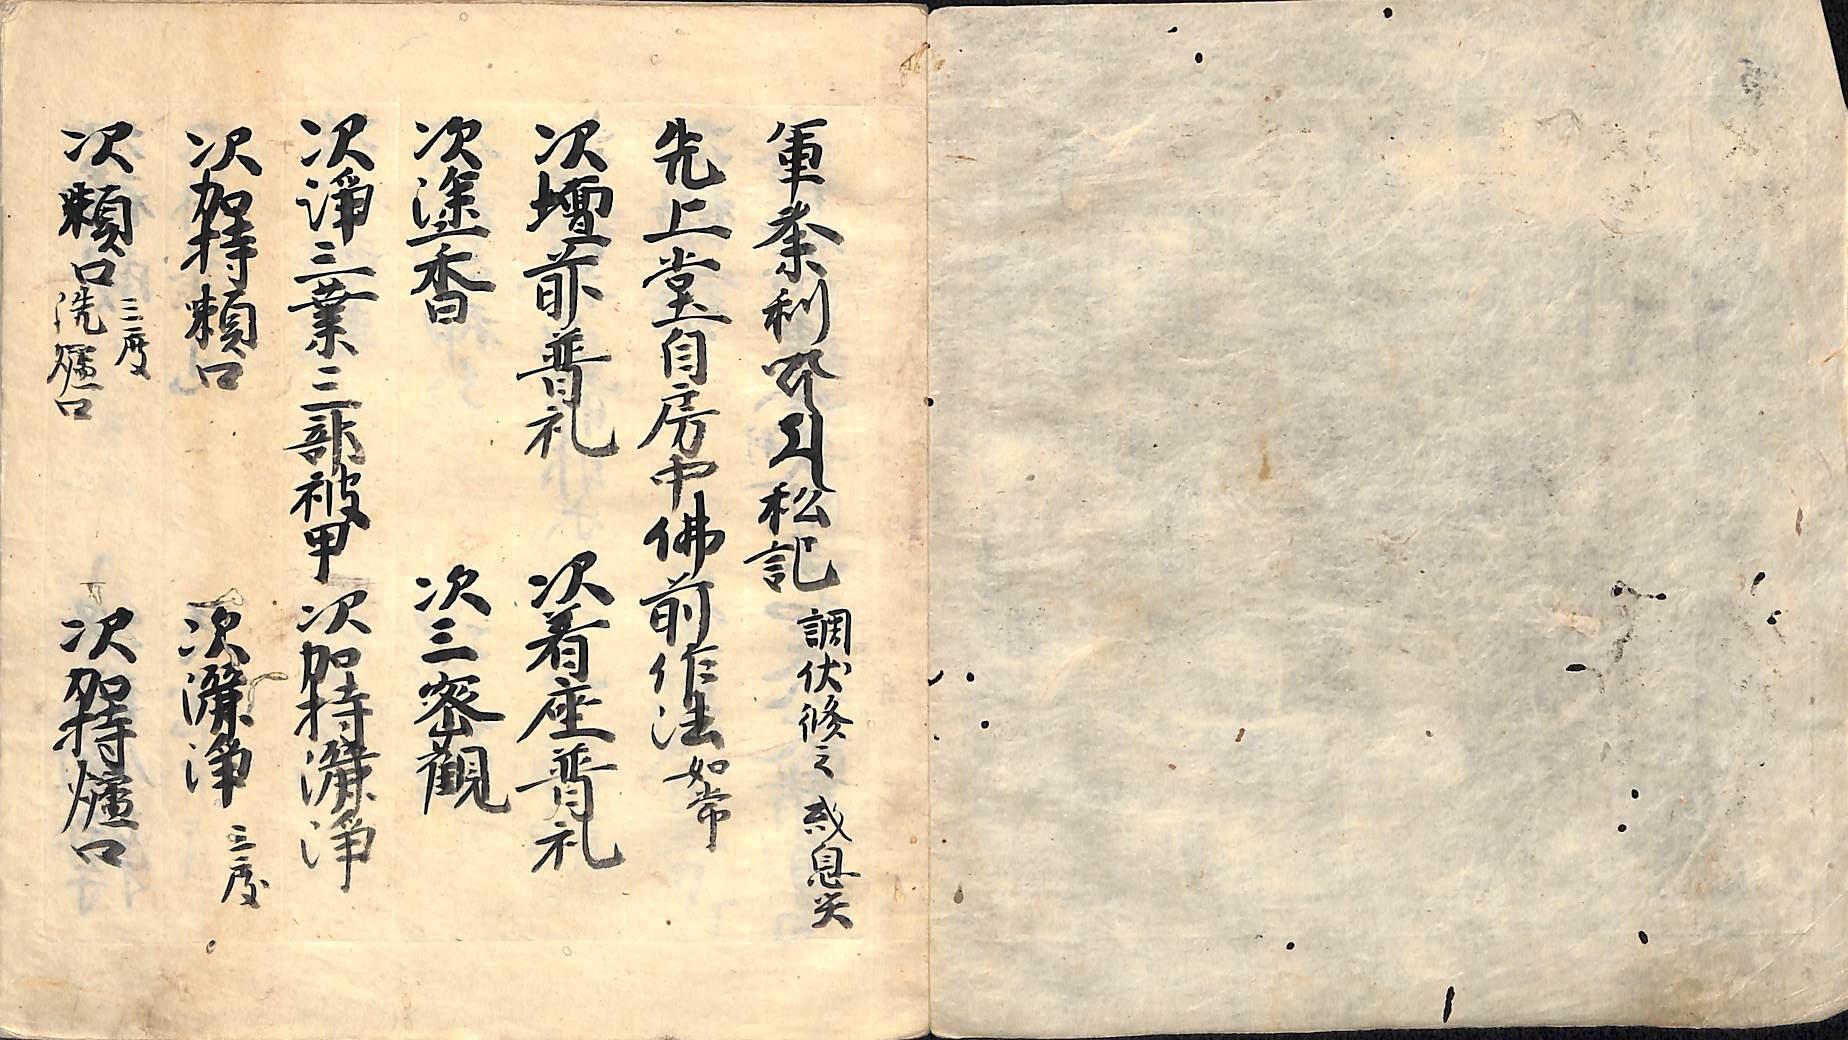 軍荼利 私記 調伏修之 或息災
先上堂自房中佛前作法 如常
次壇前普礼 次着座普礼
次塗香 次三密觀
次淨三業三部被甲 次加持灑淨
次加持嗽口 次灑淨 三度
次嗽口 三度 洗爐口 次加持爐口